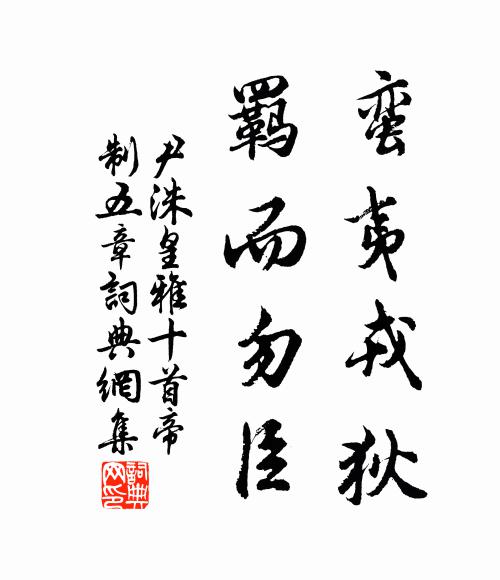 蛮夷戎狄
羈而勿臣
尹洙皇雅十首帝
制五章詞典網集
詞典网印